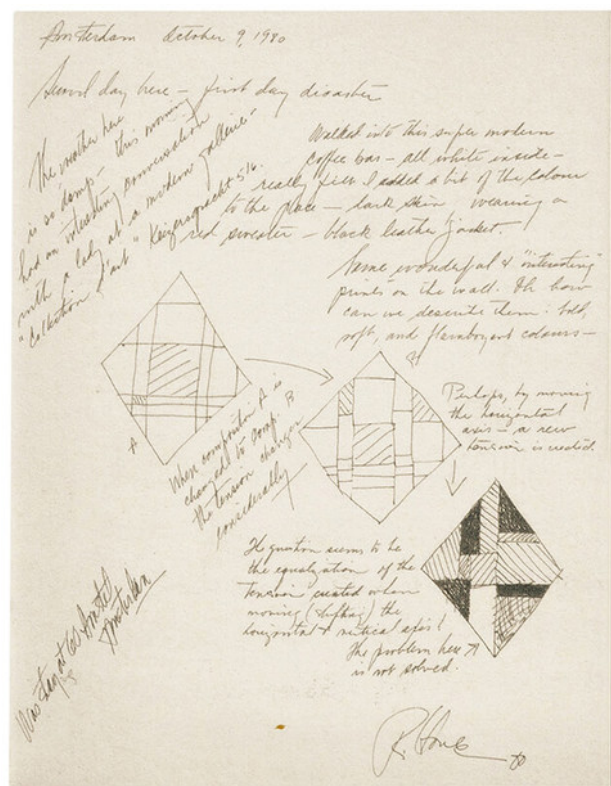 Amsterdam October 9, 1980
Second day here – first day disaster
The weather here
is so damp – this morning
had an interesting conversation
with a lady at a modern gallerie –
"Collection d'art" Keizersgracht 516.
Walked into this super modern
coffee bar – all white inside –
really felt I added a bit of the colour
to the place – dark skin wearing a
red sweater – black leather jacket.
Some wonderful & "interesting"
prints on the wall. Oh how
can we describe them: bold,
soft, and flamboyant colours –
A
B
When composition A is
changed to comp. B
the tension changes
considerably
Perhaps, by moving
the horizontal
axis – a new
tension is created.
The question seems to be
the equalization of the
tension created when
moving (shifting) the
horizontal & vertical axis!
The problem here
is not solved.
Was Stay at
Amsterdam
80